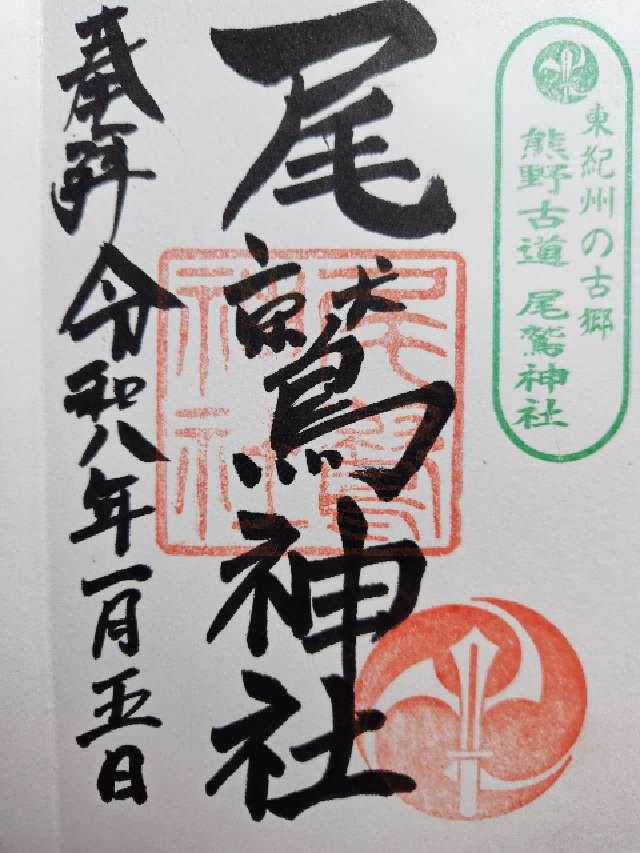 東紀州の古郷
熊野古道 尾鷲神社
尾鷲神社
尾鷲神社
奉拝 令和八年一月五日